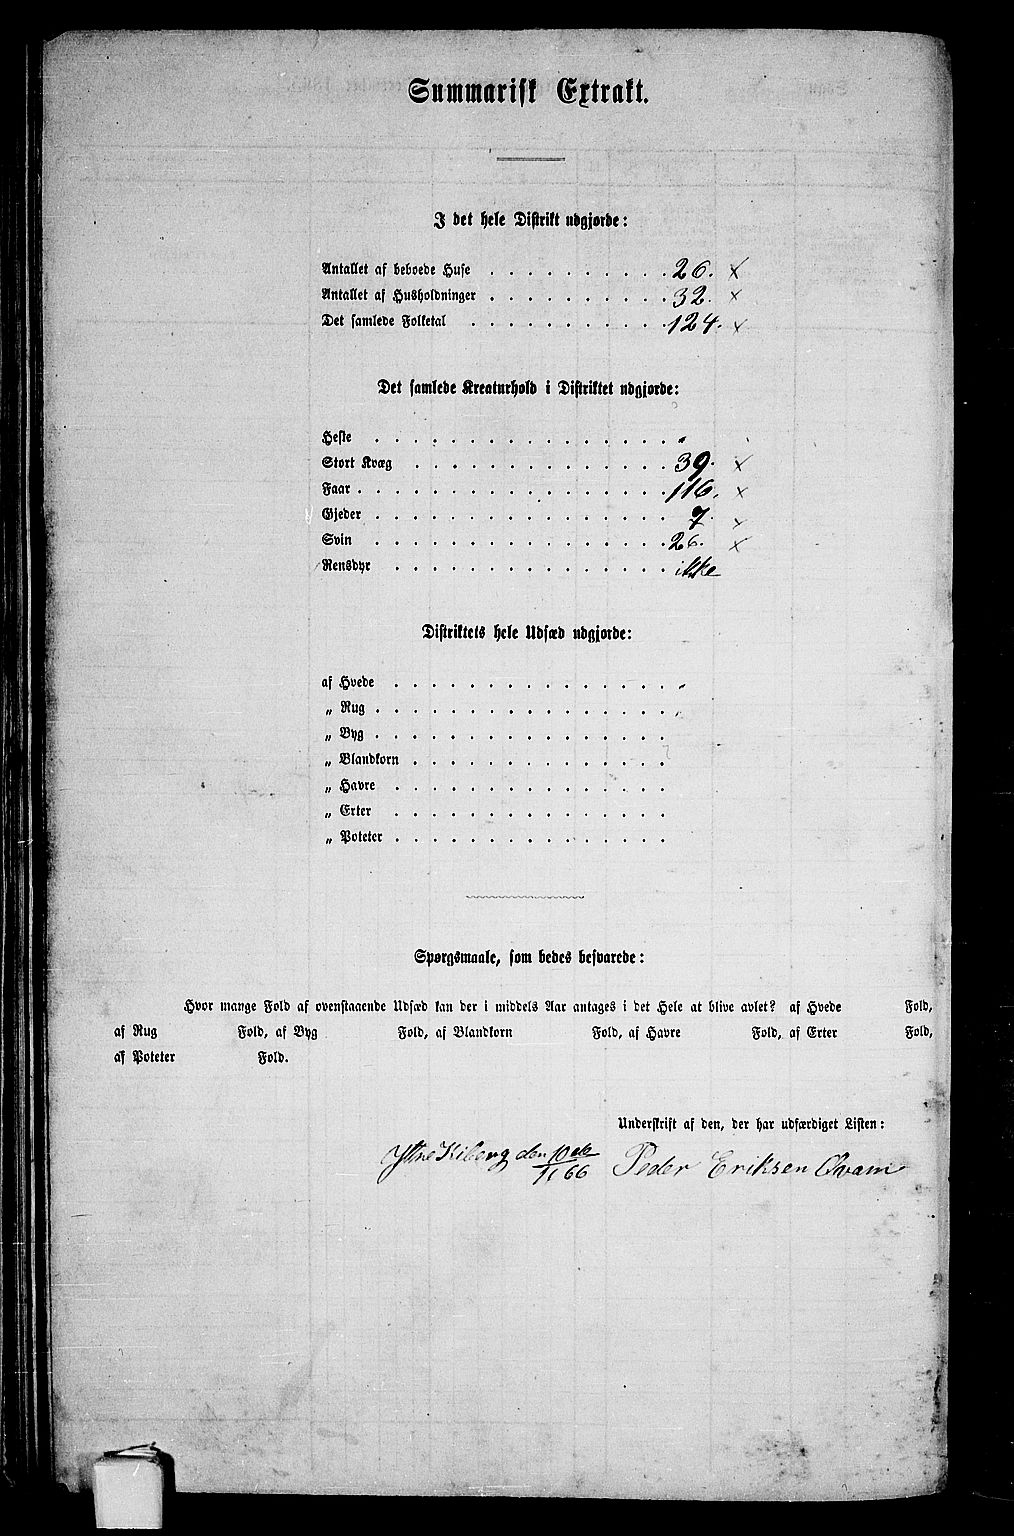 Summarisk Extrakt.
I det hele Distrikt udgjorde:
Antallet af beboede Huse . . . . . . . . . . 26. ×
Antallet af Husholdninger . . . . . . . . . . 32. ×
Det samlede Folketal . . . . . . . . . . . 124. ×
Det samlede Kreaturhold i Distriktet udgjorde:
Heste . . . . . . . . . . . . . . . . „
Stort Kvæg . . . . . . . . . . . . . . 39. ×
Faar . . . . . . . . . . . . . . . . . 116. ×
Gjeder . . . . . . . . . . . . . . . . 7. ×
Svin . . . . . . . . . . . . . . . . 26. ×
Rensdyr . . . . . . . . . . . . . . . ikke
Distriktets hele Udsæd udgjorde:
af Hvede . . . . . . . . . . . . . . . „
„ Rug . . . . . . . . . . . . . . . . „
„ Byg . . . . . . . . . . . . . . . .
„ Blandkorn . . . . . . . . . . . . . .
„ Havre . . . . . . . . . . . . . . .
„ Erter . . . . . . . . . . . . . . .
„ Poteter . . . . . . . . . . . . . . .
Spørgsmaale, som bedes besvarede:
Hvor mange Fold af ovenstaaende Udsæd kan der i middels Aar antages i det Hele at blive avlet? af Hvede Fold,
af Rug Fold, af Byg Fold, af Blandkorn Fold, af Havre Fold, af Erter Fold,
af Poteter Fold.
Underskrift af den, der har udfærdiget Listen:
Ytre Kiberg den 10de/1 66 Peder Eriksen Qvam